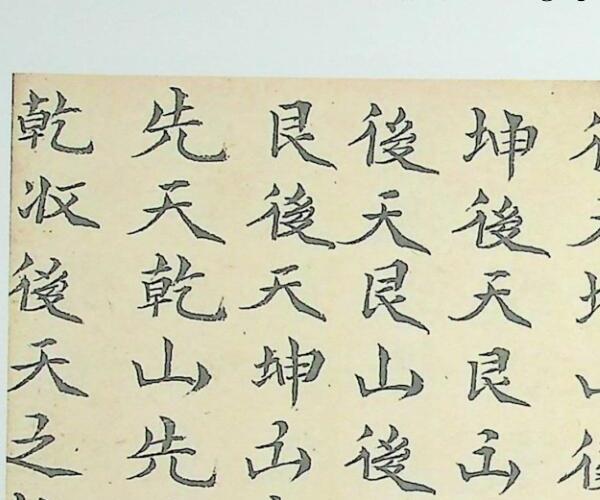 坤後天艮山
後天艮山後
艮後天坤山
先天乾山先
乾収後天之